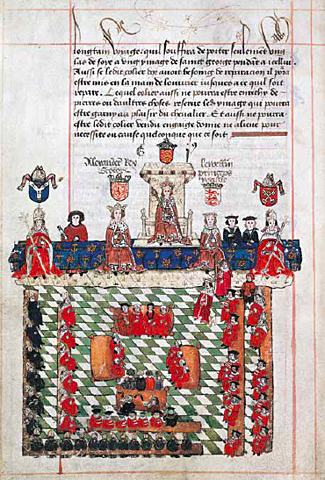 longtain voyage: qui souffira de porter seulement ung
las de soye a vng ymage de sainct george pendãt a icellui.
Aussi se ledit colier auoit besoing de reparacion il pora
estre mis en la main de louurier iusques a ce quil soit
repare. Lequel colier aussi ne pourra estre enrichy de
pierres ou daultres choses reserue les ymage qui pourra
estre garny au plaisir du chevalier. Et aussi ne pourra
estre ledit colier vendu engaige donne ne aliene pour
necessite ou cause quelconque que ce soit
Alexander Rex
princeps